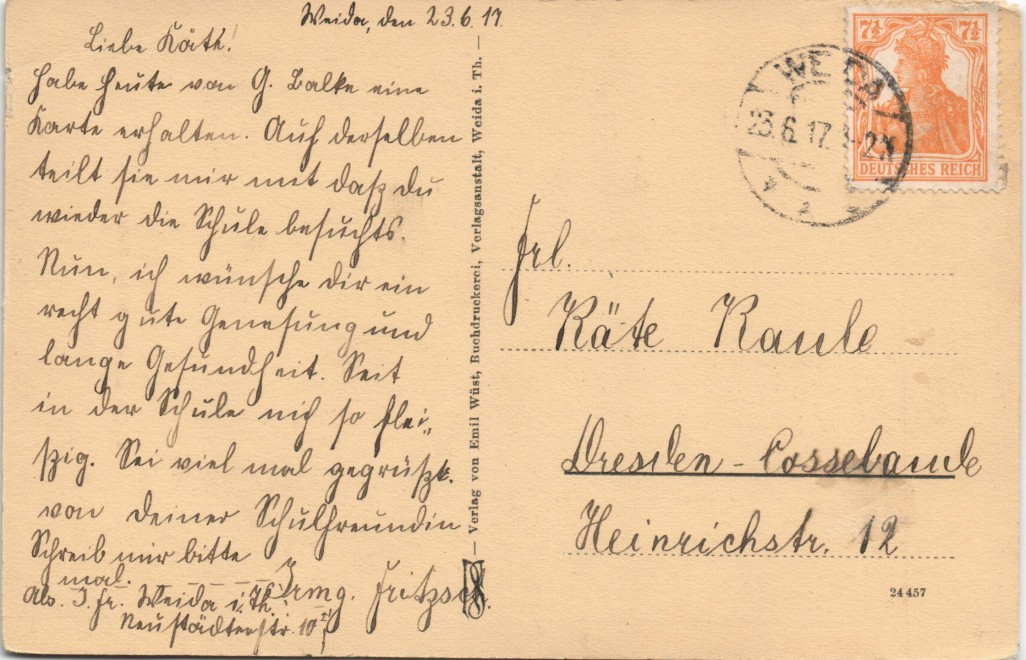 Weida, den 23.6.17.
Liebe Käth!
Habe heute von G. Balke eine
Karte erhalten. Auf derselben
teilt sie mir met daß du
wieder die Schule besuchts.
Nun, ich wünsche dir ein
recht gute Genesung und
lange Gesundheit. Seit
in der Schule nich so flei„
ßig. Sei viel mal gegrüßt.
von deiner Schulfreundin
Schreib mir bitte
mal. Irmg. Fritzsch.
Abs. I. Fr. Weida i. Th.
Neustädterstr. 10
Verlag von Emil Wüst, Buchdruckerei, Verlagsanstalt, Weida i. Th.
7½ 7½
DEUTSCHES REICH
WEIDA
23.6.17.
Frl.
Käte Kaule
Dresden - Cossebaude
Heinrichstr. 12
24457